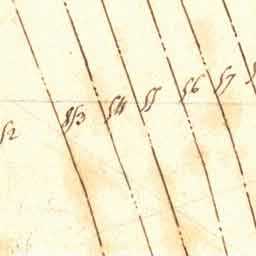 52 53 54 55 56 57